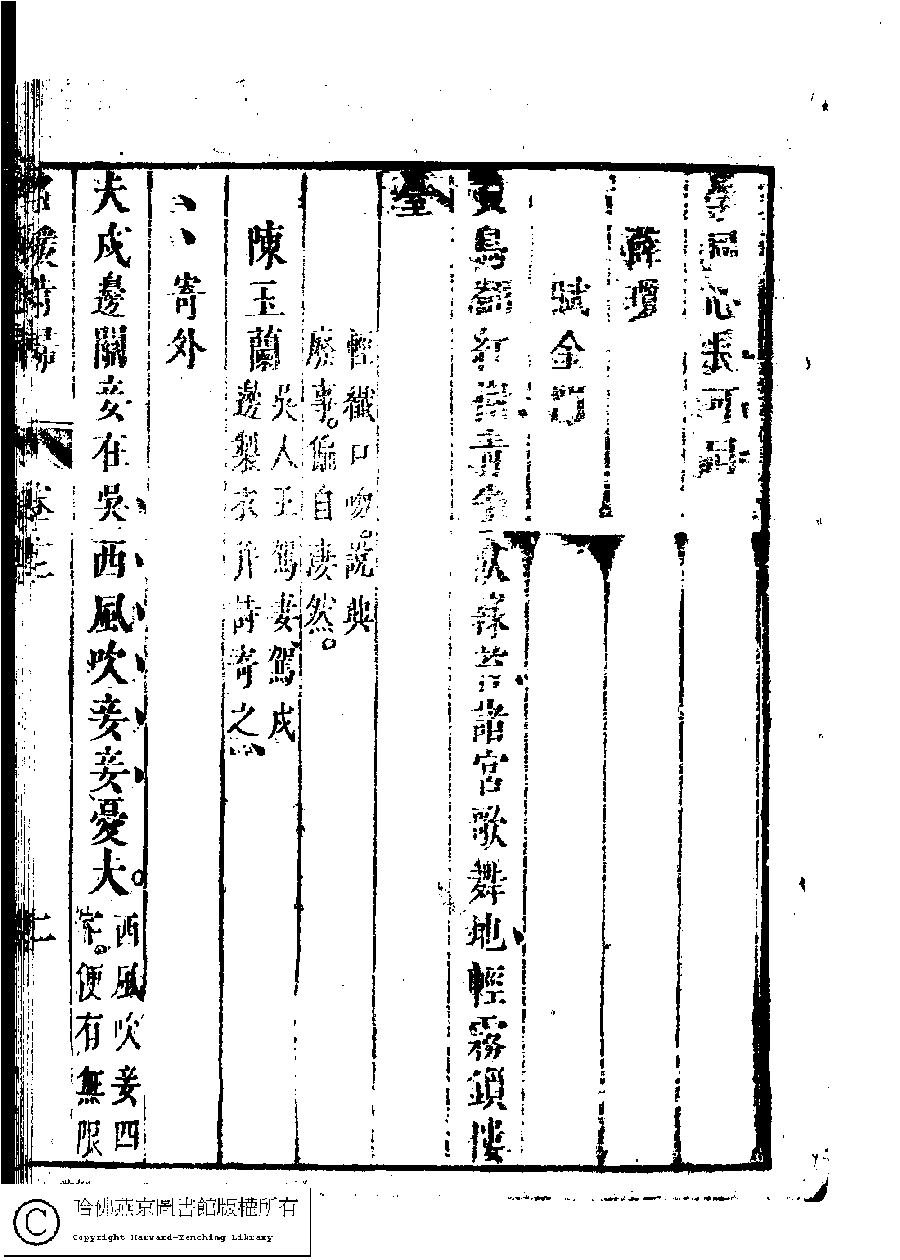 心
薛瓊
賦金
黃鳥翻紅樹青牛臥綠苔渚宮歌舞地輕霧鎖樓
臺
輕纖口吻。說典
廢事。偏自淒然。
陳玉蘭
吳人王駕妻駕戍
邊製衣并詩寄之
寄外
夫戍邊關妾在吳西風吹妾妾憂夫。
西風吹妾四
字。便有無限
名媛詩歸
卷
哈佛燕京圖書館版權所有
Copyright Harvard-Yenching Library